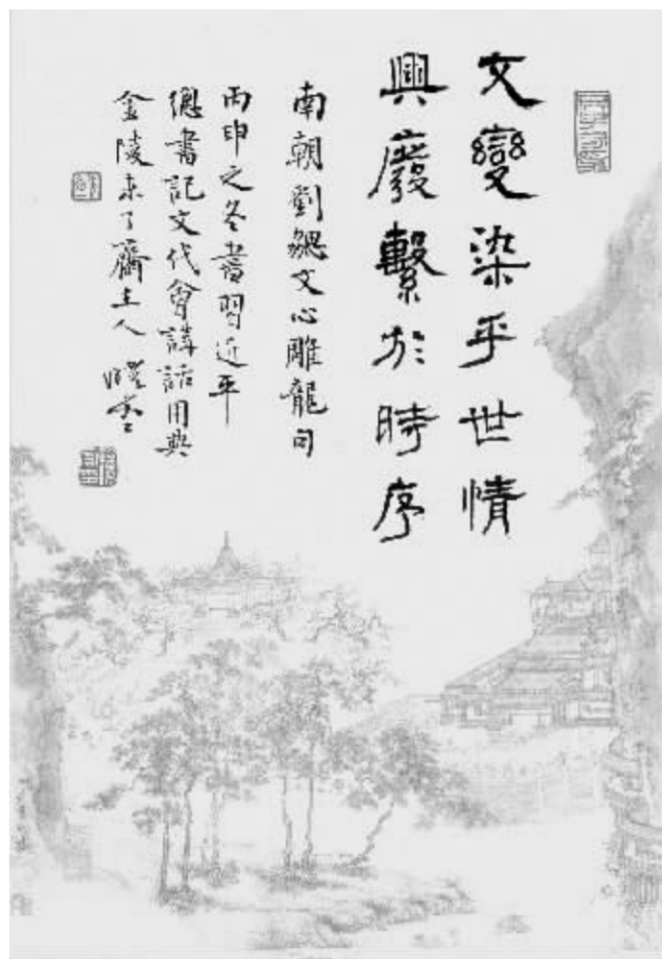 文變染乎世情
興廢繫於時序
南朝劉勰文心雕龍句
丙申之冬書習近平
總書記文代會講話用典
金陵來了齋主人